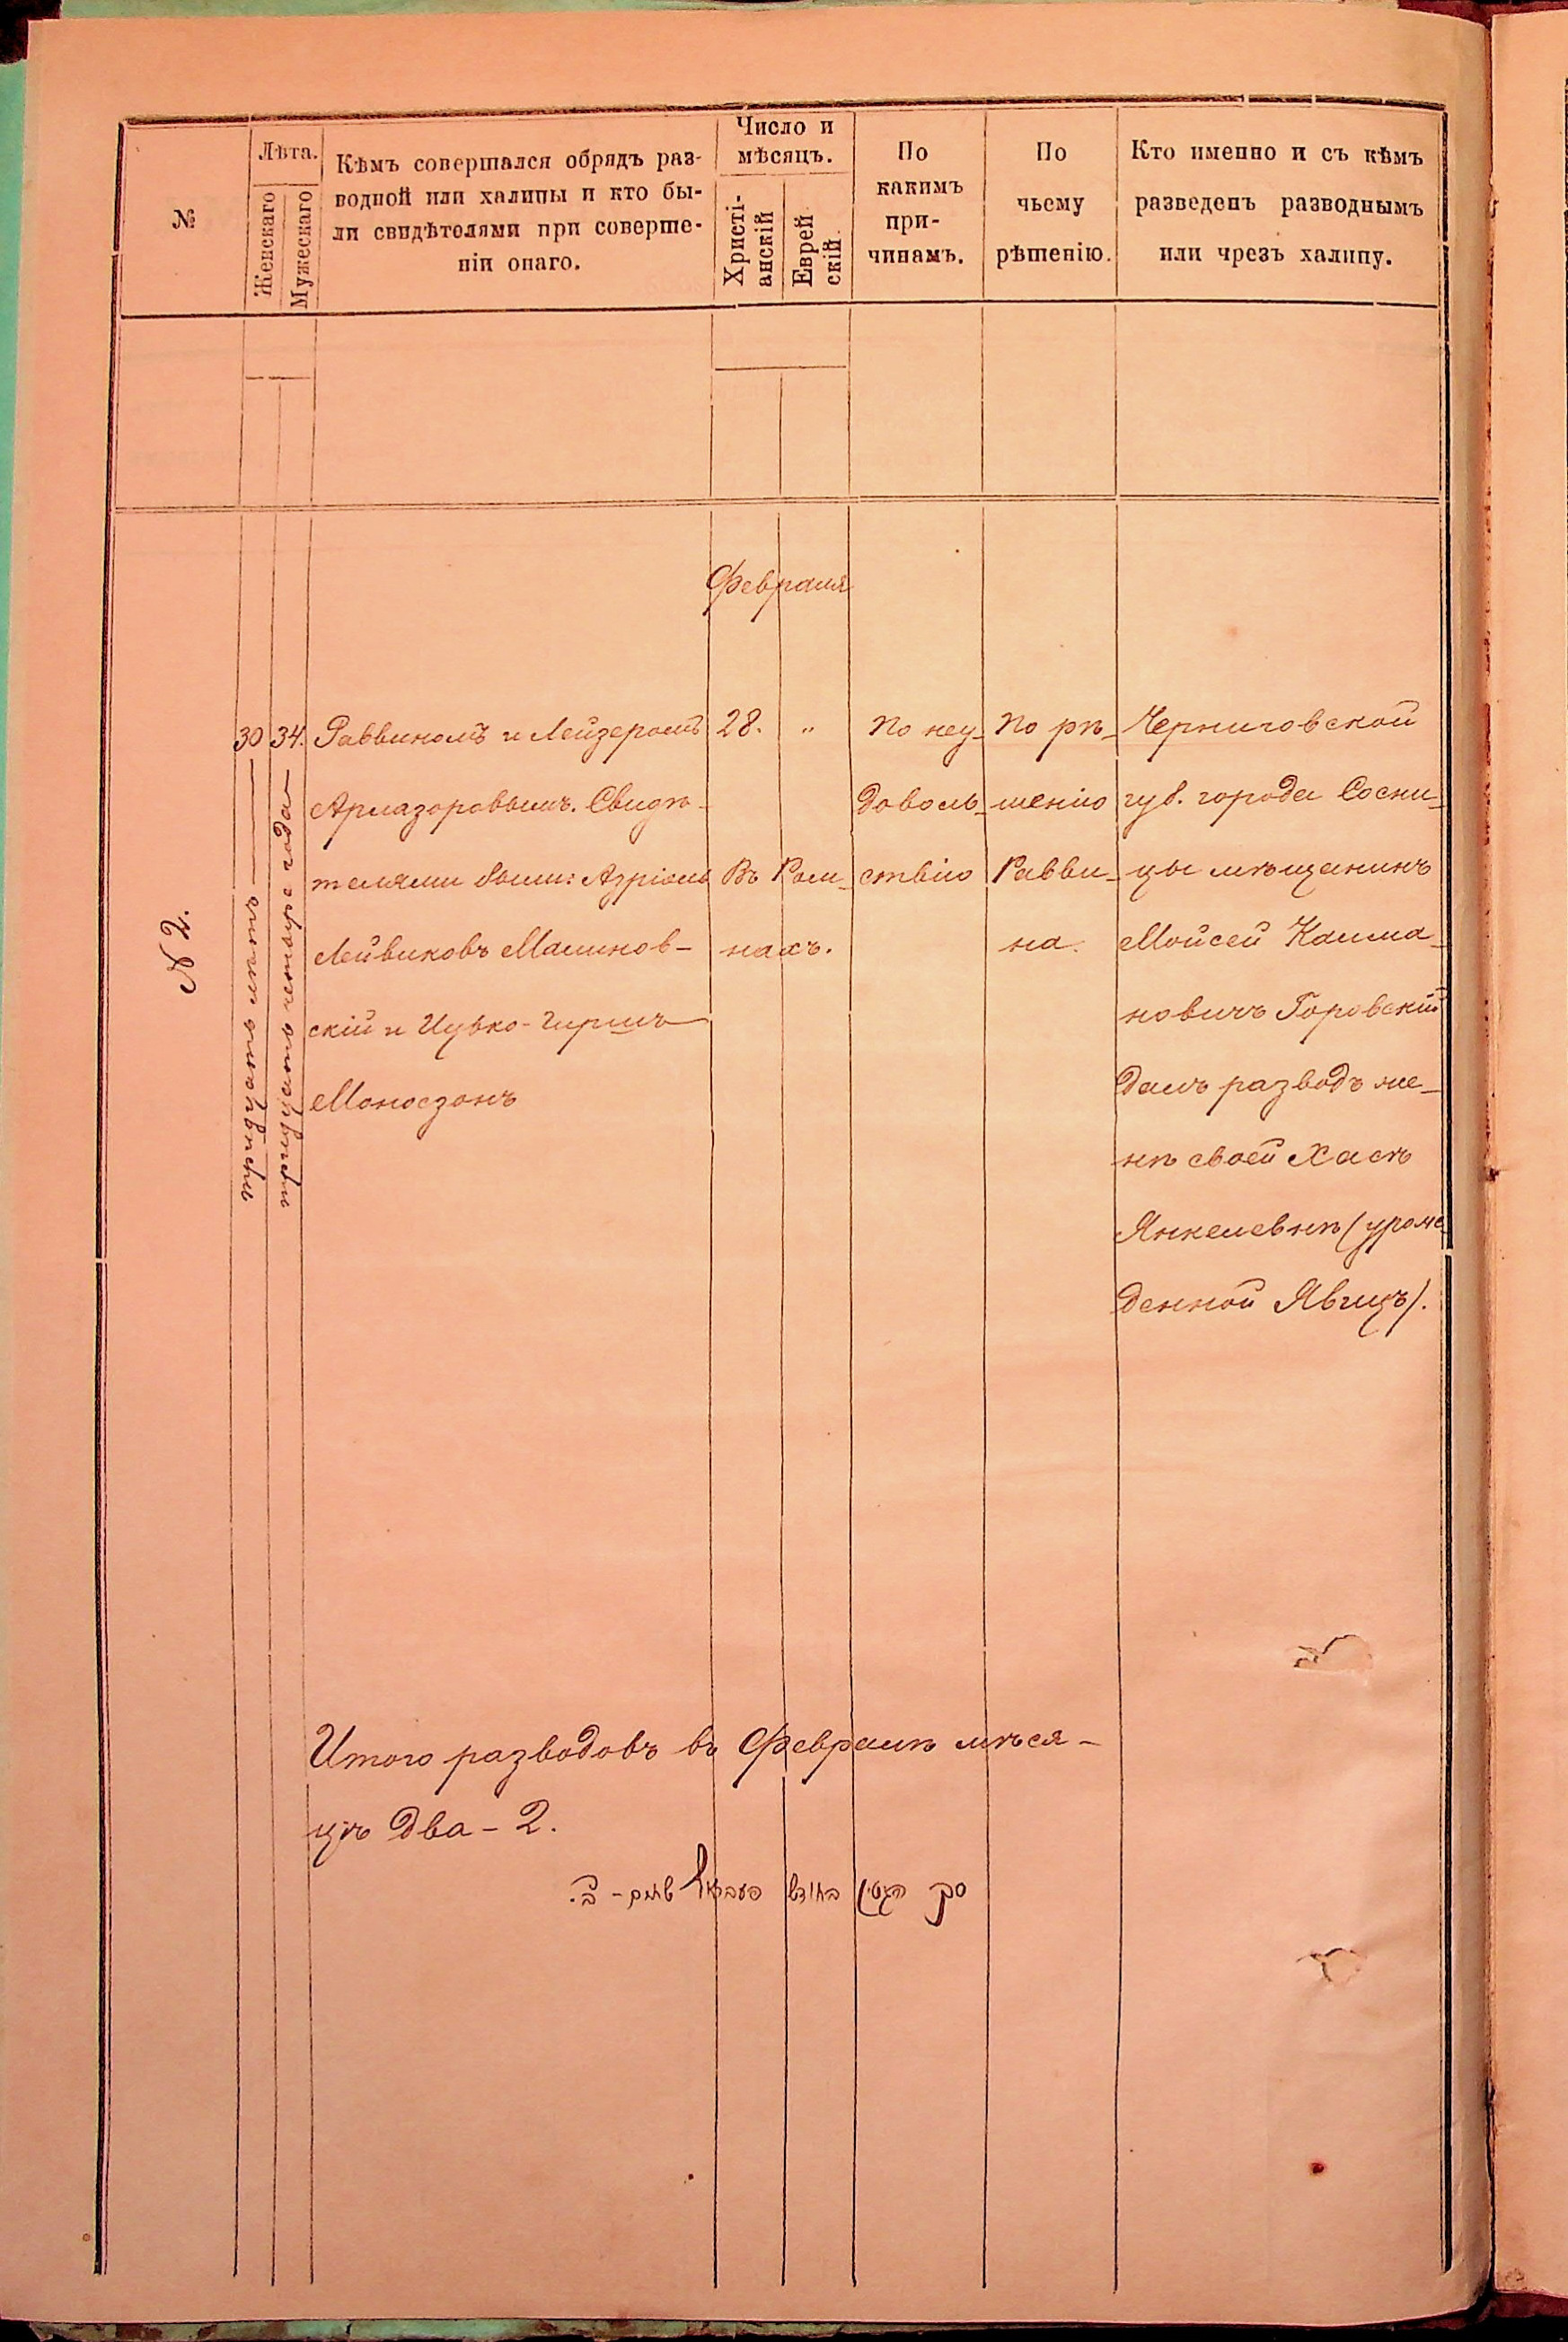 №
Лѣта.
Женскаго
Мужескаго
Кѣмъ совершался обрядъ раз-
водной или халицы и кто бы-
ли свидѣтелями при соверше-
ніи онаго.
Число и
мѣсяцъ.
Христі-
анскій
Еврей
скій.
По
какимъ
при-
чинамъ.
По
чьему
рѣшенію.
Кто именно и съ кѣмъ
разведенъ разводнымъ
или чрезъ халицу.
Февраля
N 2.
30
тридцать лѣтъ
34.
тридцать четыре года
Раввиномъ и Лейзеромъ
Армазоровымъ. Свидѣ-
телями были: Азріель
Лейвиковъ Малинов-
скій и Ицько-Гиршъ
Моносзонъ
28. "
Въ Ром-
нахъ.
По неу-
доволь-
ствію
По рѣ-
шенію
Равви-
на.
Черниговской
губ. города Сосни-
цы мѣщанинъ
Мойсей Калма-
новичъ Горовскій
далъ разводъ же-
нѣ своей Хасѣ
Янкелевнѣ (урож-
денной Явицъ).
Итого разводовъ въ Февралѣ мѣся-
цѣ два - 2.
סך הגטין בחודש פעבראל שנים - ב.